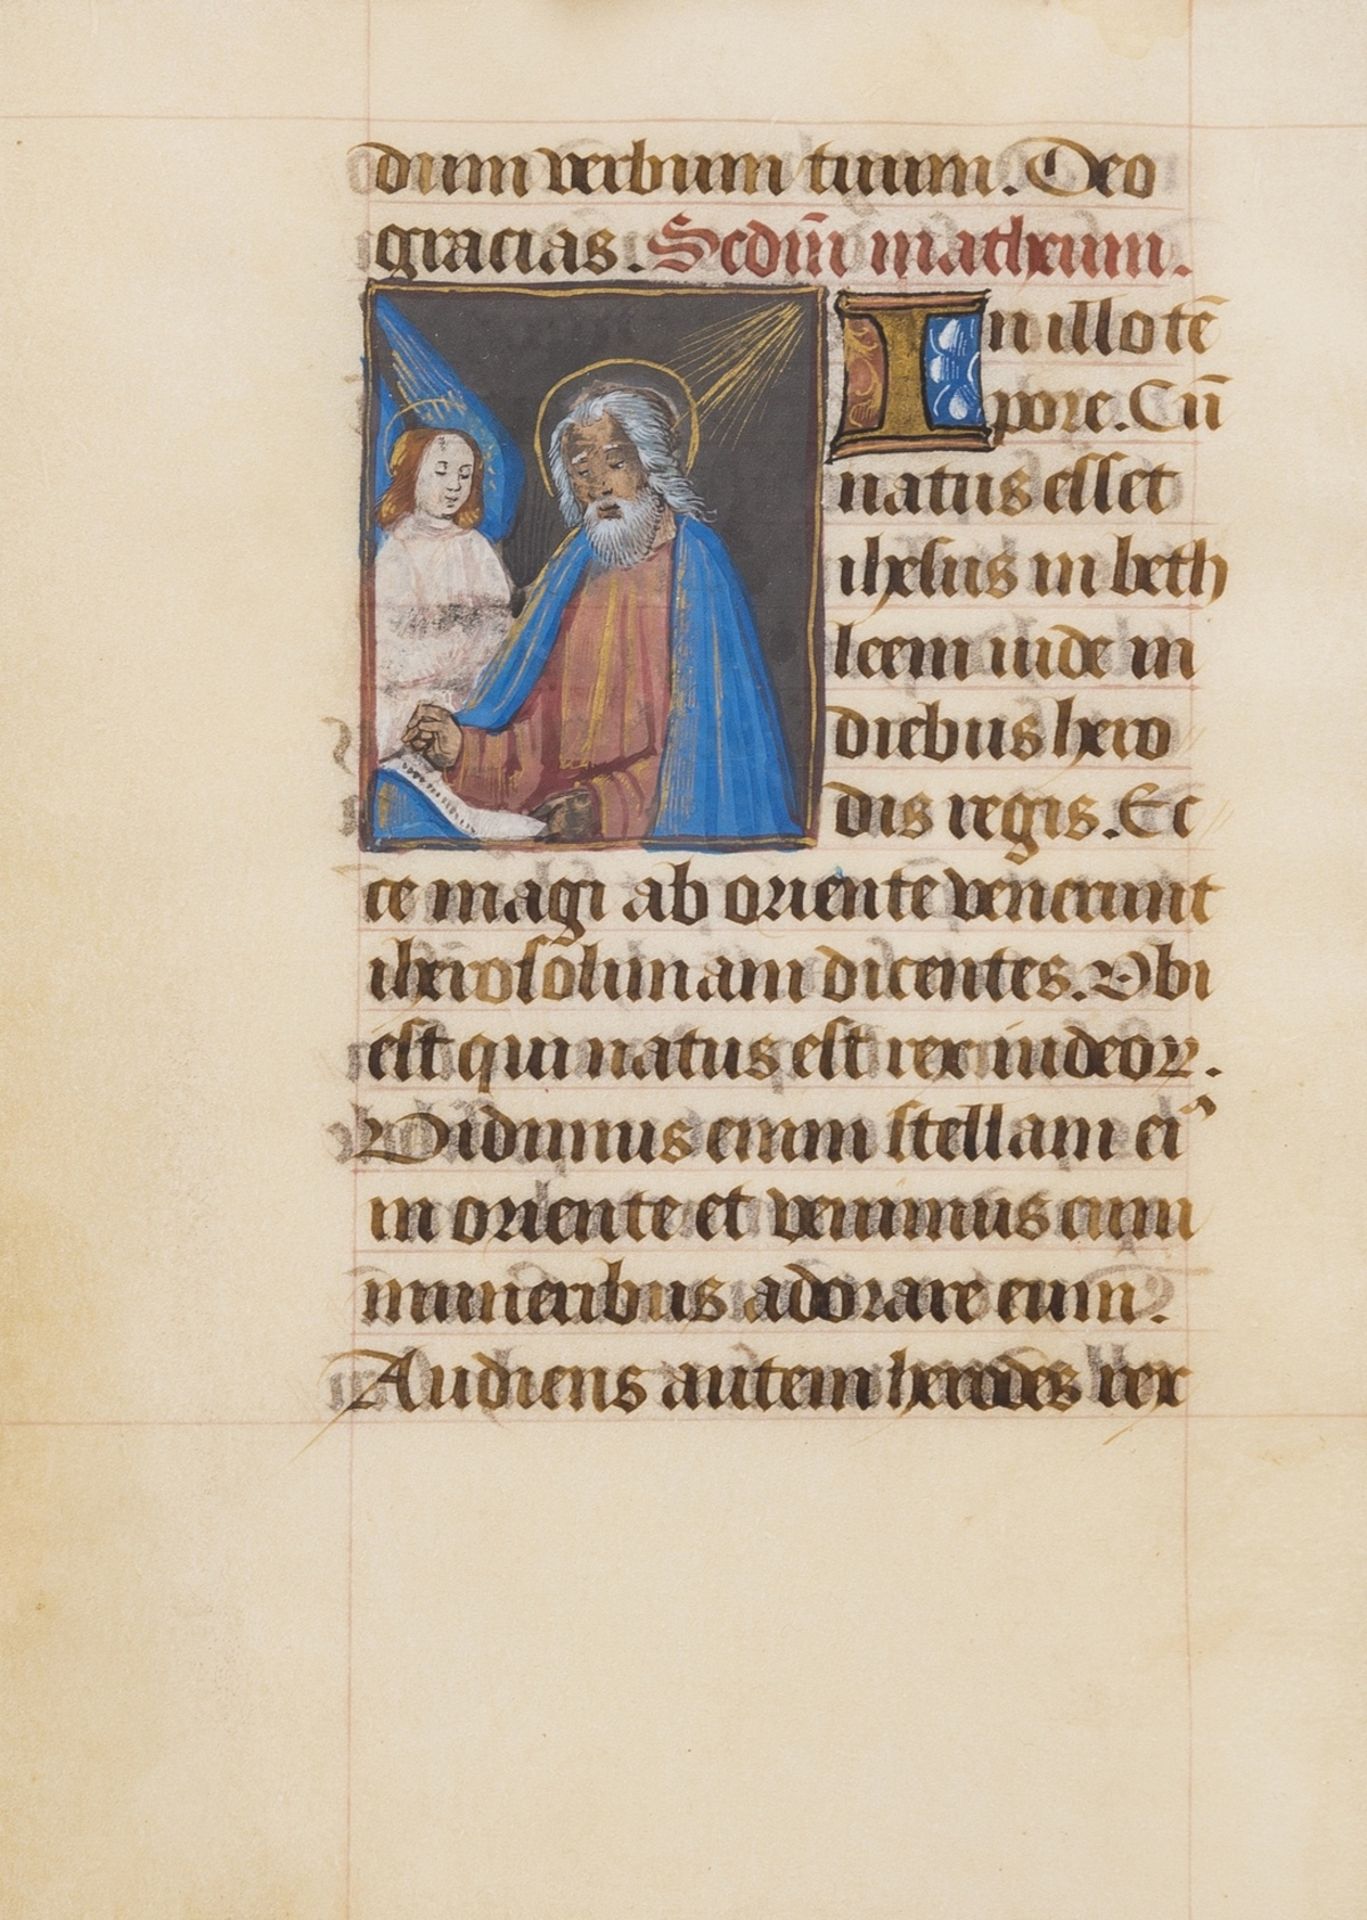 dum verbum tuum. Deo
gracias. Scdm̄ matheum.
In illo tē
pore. Cū
natus esset
ihesus in beth
leem iude in
diebus hero
dis regis. Ec
ce magi ab oriente venerunt
iherosolimam dicentes. Vbi
est qui natus est rex iudeoꝝ.
Vidimus enim stellam eiꝰ
in oriente et venimus cum
muneribus adorare eum.
Audiens autem herodes rex